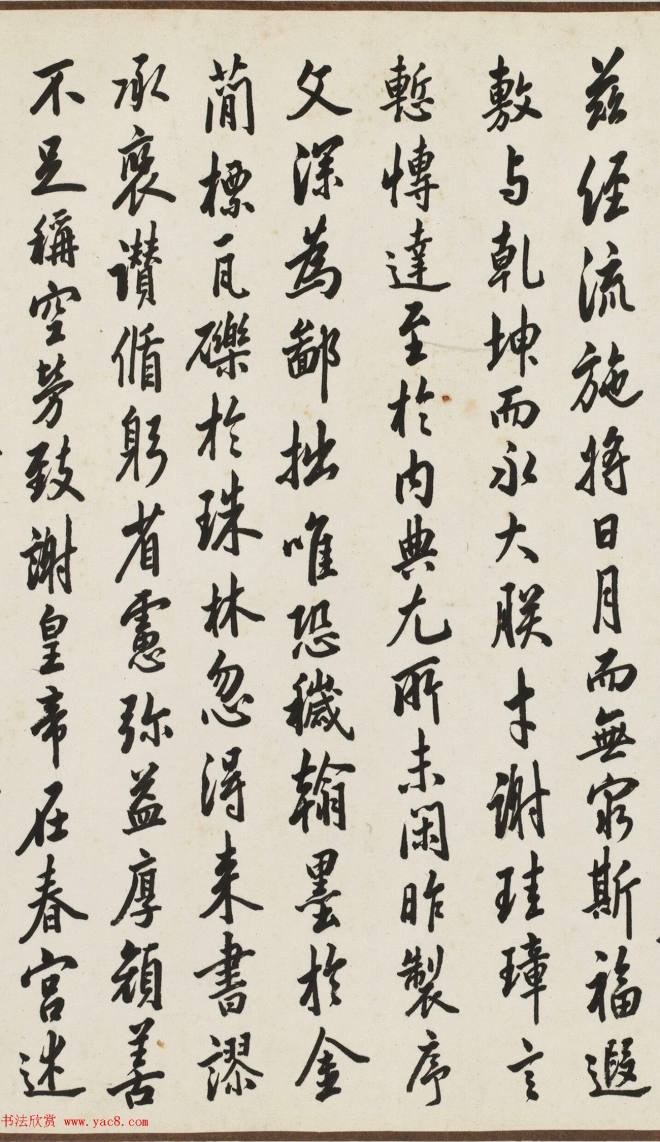 茲經流施將日月而無窮斯福遐
敷与乾坤而永大朕才謝珪璋言
慙博達至於内典尤所未閑昨製序
文深為鄙拙唯恐穢翰墨於金
簡標瓦礫於珠林忽得来書謬
承褒讚循躬省慮弥益厚顔善
不足稱空勞致謝皇帝在春宮述
书法欣赏 www.yac8.com